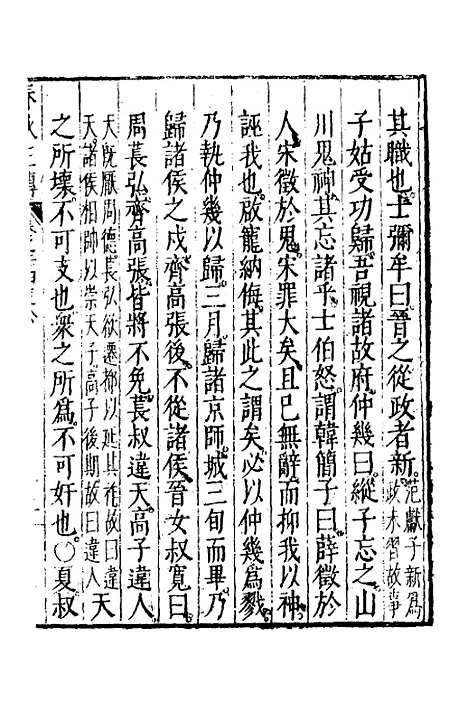 其職也士彌牟曰晉之從政者新范獻子新爲政未習故事
子姑受功歸吾視諸故府仲幾曰縱子忘之山
川鬼神其忘諸乎士伯怒謂韓簡子曰薛徵於
人宋徵於鬼宋罪大矣且已無辭而抑我以神
誣我也啟寵納侮其此之謂矣必以仲幾爲戮
乃執仲幾以歸三月歸諸京師城三旬而畢乃
歸諸侯之戍齊高張後不從諸侯晉女叔寬曰
周萇弘齊高張皆將不免萇叔違天高子違人
天旣厭周德萇弘欲遷都以延其祚故曰違天諸侯相帥以崇天子高子後期故曰違人天
之所壞不可支也衆之所爲不可奸也○夏叔